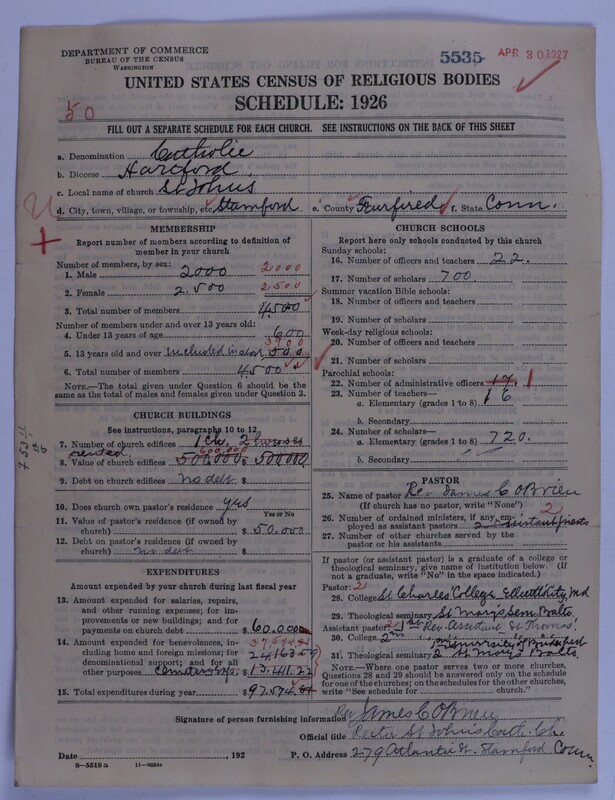 DEPARTMENT OF COMMERCE
BUREAU OF THE CENSUS
WASHINGTON
5535
APR 30 1927
UNITED STATES CENSUS OF RELIGIOUS BODIES
SCHEDULE: 1926
50
FILL OUT A SEPARATE SCHEDULE FOR EACH CHURCH. SEE INSTRUCTIONS ON THE BACK OF THIS SHEET
a. Denomination Catholic
b. Diocese Hartford
c. Local name of church St Johns
d. City, town, village, or township, etc. Stamford e. County Fairfield f. State Conn.
MEMBERSHIP
Report number of members according to definition of member in your church
Number of members, by sex:
1. Male 2000 2000
2. Female 2.500 2500
3. Total number of members 4,500
Number of members under and over 13 years old:
4. Under 13 years of age 600
3900
5. 13 years old and over included in above 500
6. Total number of members 4.500
NOTE.—The total given under Question 6 should be the same as the total of males and females given under Question 3.
CHURCH BUILDINGS
See instructions, paragraphs 10 to 12
7. Number of church edifices 1 ch. 2 houses
rented 600,000
8. Value of church edifices 500,000 $ 500,000
9. Debt on church edifices no debt $
10. Does church own pastor's residence yes
Yes or No
11. Value of pastor's residence (if owned by church) $ 50.000
12. Debt on pastor's residence (if owned by church) no debt $
EXPENDITURES
Amount expended by your church during last fiscal year
13. Amount expended for salaries, repairs, and other running expenses; for improvements or new buildings; and for payments on church debt $ 60.000
14. Amount expended for benevolences, including home and foreign missions; for denominational support; and for all other purposes
15. Total expenditures during year $
CHURCH SCHOOLS
Report here only schools conducted by this church
Sunday schools:
16. Number of officers and teachers 22.
17. Number of scholars 700
Summer vacation Bible schools:
18. Number of officers and teachers
19. Number of scholars
Week-day religious schools:
20. Number of officers and teachers
21. Number of scholars
Parochial schools:
22. Number of administrative officers 17. 1
23. Number of teachers—
a. Elementary (grades 1 to 8) 16
b. Secondary
24. Number of scholars—
a. Elementary (grades 1 to 8) 720.
b. Secondary
PASTOR
25. Name of pastor Rev James C OBrien
(If church has no pastor, write "None")
26. Number of ordained ministers, if any, employed as assistant pastors 2 assistant priests
27. Number of other churches served by the pastor or his assistants
If pastor (or assistant pastor) is a graduate of a college or theological seminary, give name of institution below. (If not a graduate, write "No" in the space indicated.)
Pastor: 2
28. College St Charles College Ellicott City, Md
29. Theological seminary St Mary's Sem Balto.
Assistant pastor: 1st Rev. Assistant St Thomas,
30. College
31. Theological seminary 2 St Mary's Balto.
NOTE.—Where one pastor serves two or more churches, Questions 28 and 29 should be answered only on the schedule for one of the churches; on the schedules for the other churches, write "See schedule for church."
Signature of person furnishing information Rev James C OBrien
Official title Rector St Johns Cath. Ch.
Date , 192 P. O. Address 279 Atlantic St. Stamford Conn.
8—5318 a 11—9224c